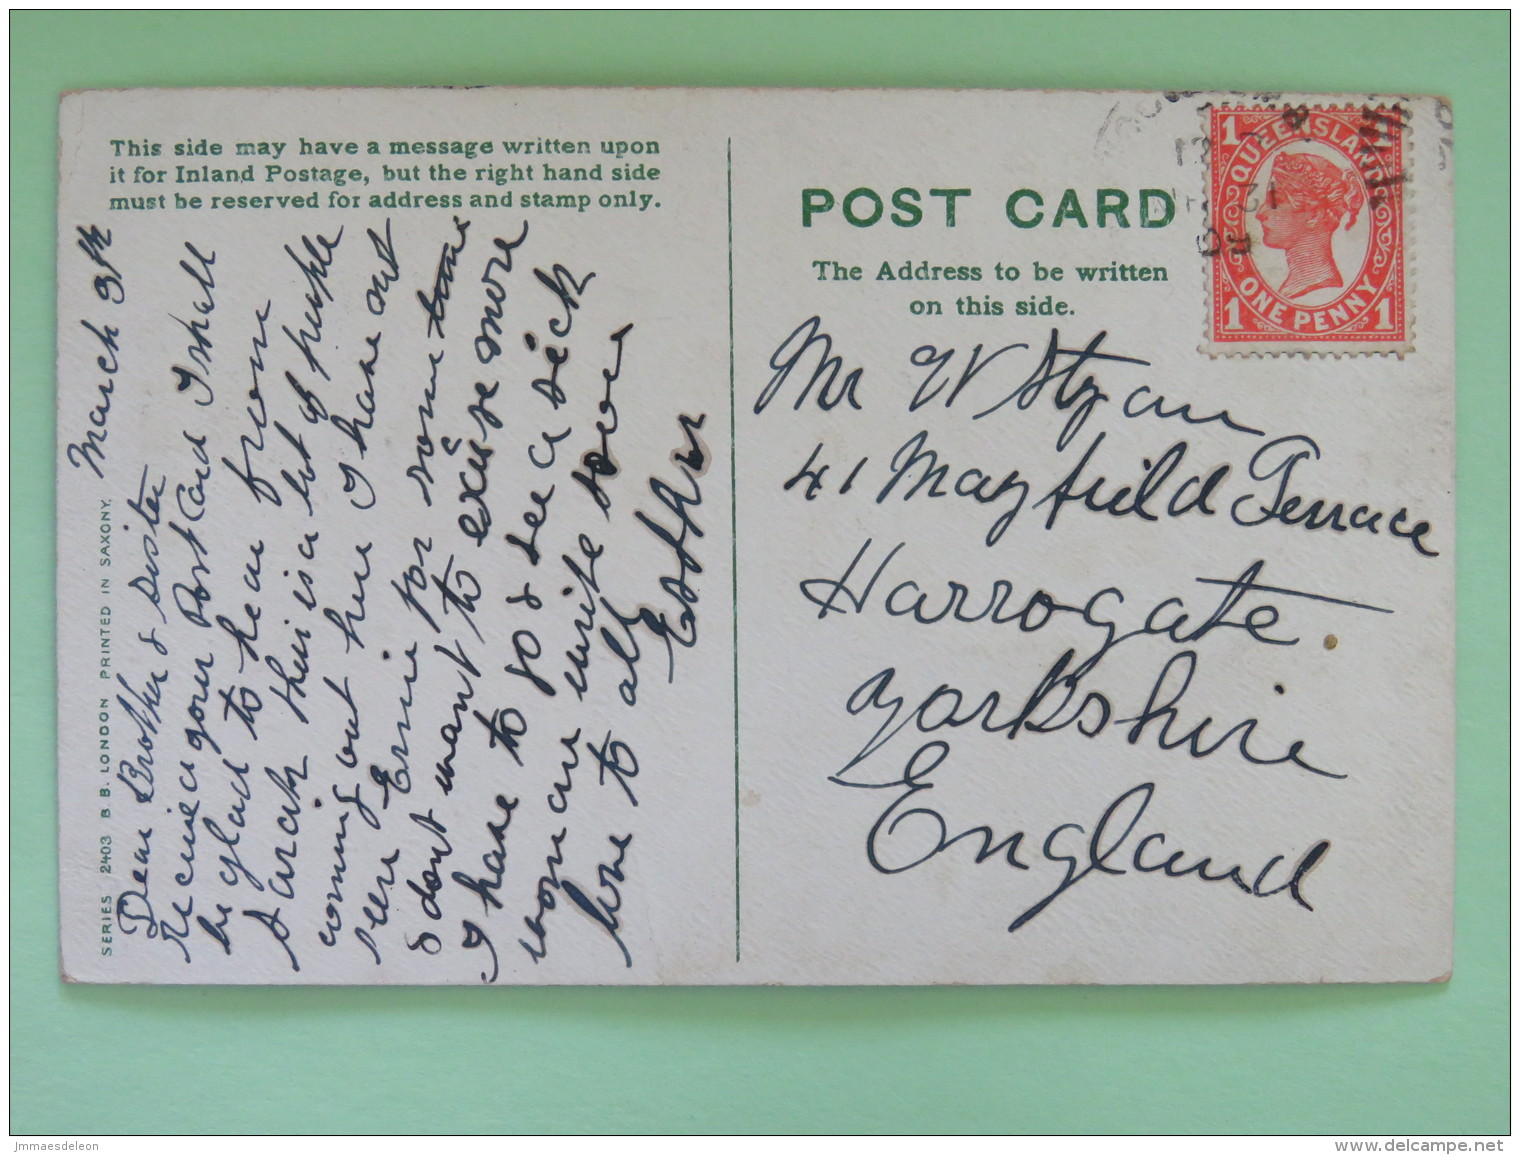 This side may have a message written upon
it for Inland Postage, but the right hand side
must be reserved for address and stamp only.
SERIES 2403 B.B. LONDON PRINTED IN SAXONY.
March 3th
Dear Brother & sister
recived your Post Card I shall
be glad to hear from
Sarah their is a lot of people
coming out here I have out
seen Ernie for some time
& dont want to excuse more
I have to go & see a sick
woman write soon
love to all
Esther
POST CARD
The Address to be written
on this side.
QUEENSLAND
ONE PENNY
1 1
1 1
Mr W Styan
41 Mayfield Terrace
Harrogate
Yorkshire
England
jmmaesdeleon
www.delcampe.net